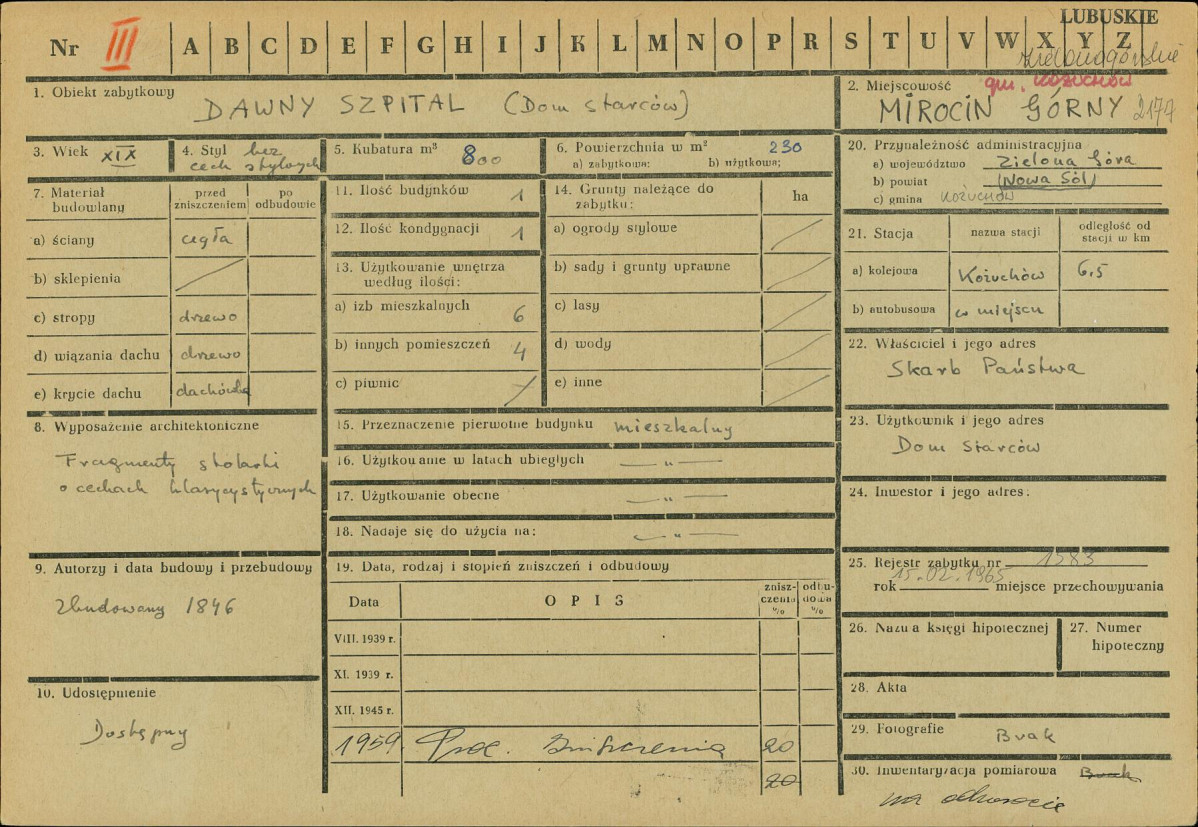 LUBUSKIE
Nr III A B C D E F G H I J K L M N O P R S T U V W X Y Z
zielonogórskie
1. Obiekt zabytkowy
DAWNY SZPITAL (Dom starców)
2. Miejscowość gm. KOŻUCHÓW
MIROCIN GÓRNY 2177
3. Wiek XIX
4. Styl bez cech stylowych
5. Kubatura m³ 800
6. Powierzchnia w m² 230
a) zabytkowa: b) użytkowa:
20. Przynależność administracyjna
a) województwo Zielona Góra
b) powiat (Nowa Sól)
c) gmina KOŻUCHÓW
7. Materiał budowlany
przed zniszczeniem
po odbudowie
a) ściany cegła
b) sklepienia
c) stropy drzewo
d) wiązania dachu drzewo
e) krycie dachu dachówka
8. Wyposażenie architektoniczne
Fragmenty stolarki
o cechach klasycystycznych
9. Autorzy i data budowy i przebudowy
Zbudowany 1846
10. Udostępnienie
Dostępny
11. Ilość budynków 1
12. Ilość kondygnacji 1
13. Użytkowanie wnętrza
według ilości:
a) izb mieszkalnych 6
b) innych pomieszczeń 4
c) piwnic
14. Grunty należące do
zabytku: ha
a) ogrody stylowe
b) sady i grunty uprawne
c) lasy
d) wody
e) inne
15. Przeznaczenie pierwotne budynku mieszkalny
16. Użytkowanie w latach ubiegłych — " —
17. Użytkowanie obecne — " —
18. Nadaje się do użycia na: — " —
19. Data, rodzaj i stopień zniszczeń i odbudowy
Data OPIS zniszczenia % odbudowa %
VIII. 1939 r.
XI. 1939 r.
XII. 1945 r.
1959 Proc. zniszczenia 20
20
21. Stacja nazwa stacji odległość od stacji w km
a) kolejowa Kożuchów 6,5
b) autobusowa w miejscu
22. Właściciel i jego adres
Skarb Państwa
23. Użytkownik i jego adres
Dom Starców
24. Inwestor i jego adres:
25. Rejestr zabytku nr 1383
rok 15.02.1965 miejsce przechowywania
26. Nazwa księgi hipotecznej
27. Numer hipoteczny
28. Akta
29. Fotografie Brak
30. Inwentaryzacja pomiarowa Brak
na odwrocie